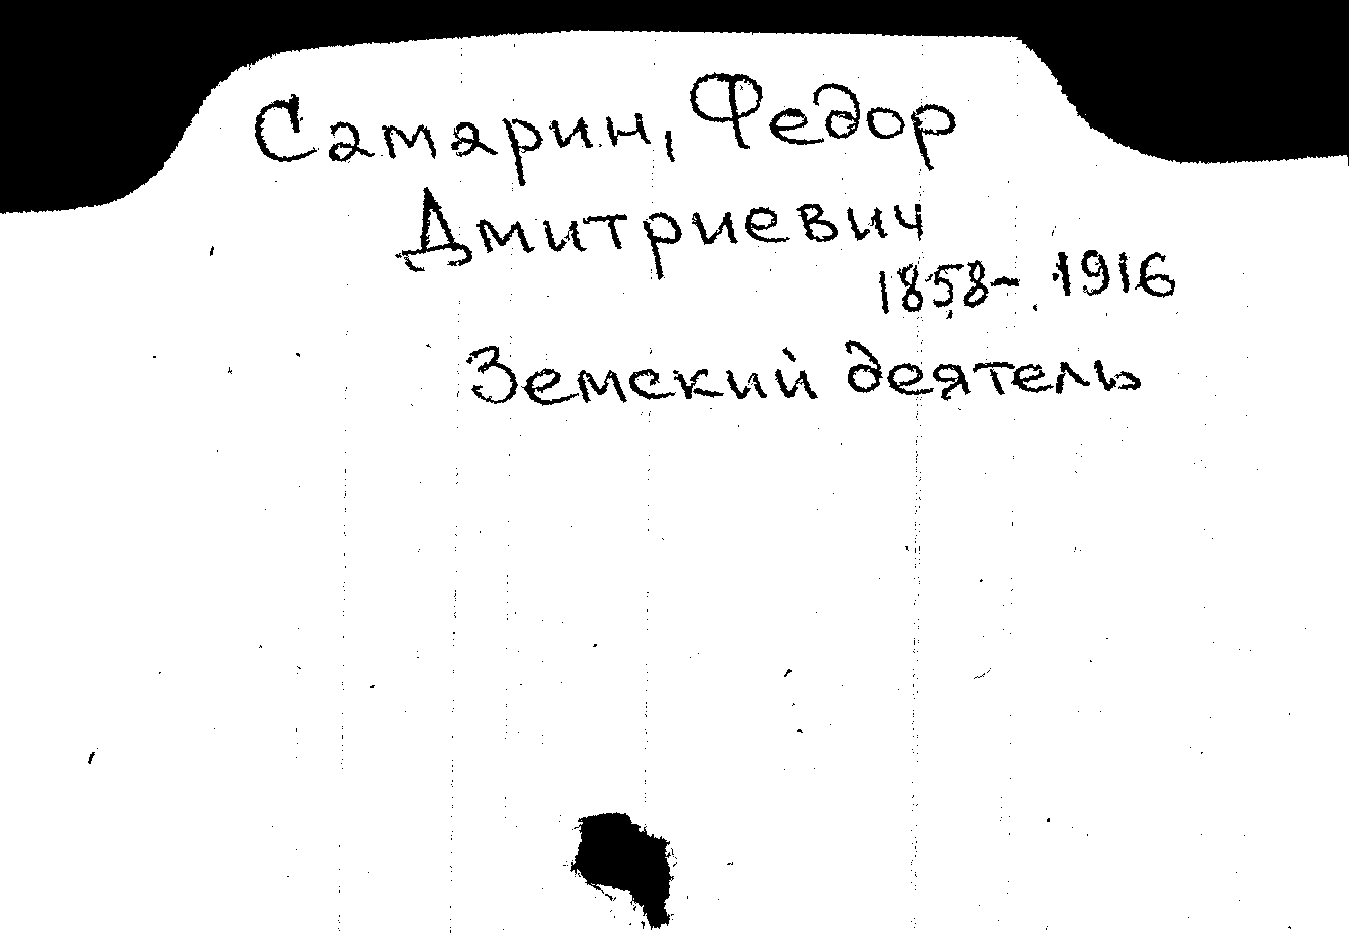 Самарин, Федор
Дмитриевич
1858-1916
Земский деятель